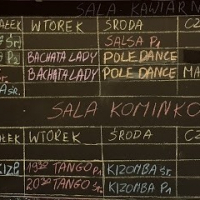 SALA KAWIAR
AŁEK WTOREK ŚRODA CZ
Śr. SALSA P1
P2 BACHATA LADY POLE DANCE
BACHATA LADY POLE DANCE MA
Śr.
SALA KOMINKO
AŁEK WTOREK ŚRODA C
KIZP. 1930 TANGO P1 KIZOMBA Śr.
2030 TANGO Śr. KIZOMBA P1